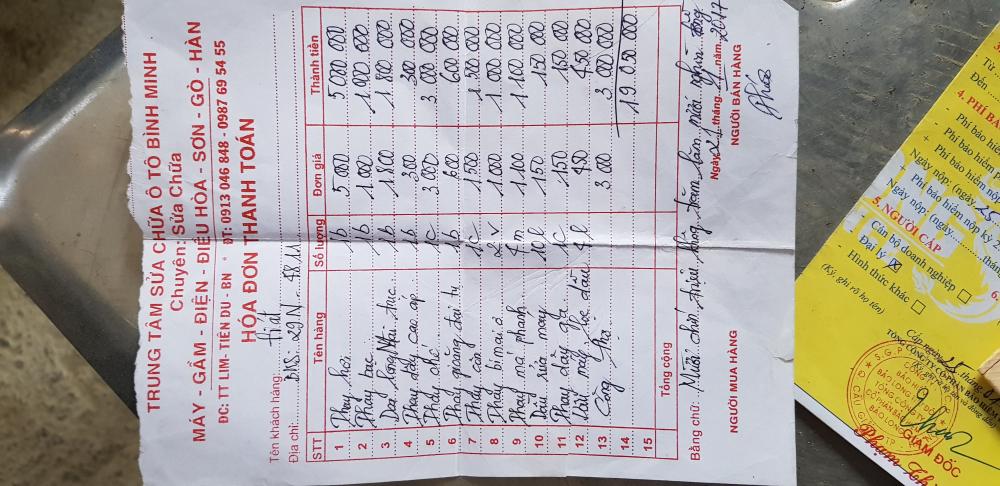 TRUNG TÂM SỬA CHỮA Ô TÔ BÌNH MINH
Chuyên: Sửa Chữa
MÁY - GẦM - ĐIỆN - ĐIỀU HÒA - SƠN - GÒ - HÀN
ĐC: TT LIM- TIÊN DU - BN * ĐT: 0913 046 848 - 0987 69 54 55
HÓA ĐƠN THANH TOÁN
Tên khách hàng
Địa chỉ: BKS: 29N - 48.11
STT Tên hàng Số lượng Đơn giá Thành tiền
1 Thay hơi 1b 5000 5 000 000
2 Thay bạc 1b 1.000 1.000 000
3 1b 1 800 1 800 000
4 Thay dây cao áp 1b 300 300 000
5 Thay chế 1c 3.000 3 000 000
6 Thay giăng đại tu 1b 600 600 000
7 Thay côn 1c 1500 1 500 000
8 Thay bi 2v 1000 1 000 000
9 Thay má phanh 4m 1.100 1.100 000
10 Dầu rửa máy 10l 150 150 000
11 Thay dây ga 1c 150 150 000
12 dầu 4l 450 450 000
13 Công thợ 3 000 3 000 000
14 19 050 000
15
Tổng cộng
Bằng chữ: Mười chín triệu không trăm năm mươi nghìn đồng
Ngày 24 tháng năm 2017
NGƯỜI MUA HÀNG NGƯỜI BÁN HÀNG
Từ
Đến
4. PHÍ BẢ
Phí bảo hiểm
Phí bảo hiểm
Phí bảo hiểm nộ
Ngày nộp: (ngày 25
Phí bảo hiểm nộp kỳ
Ngày nộp: (ngày
5. NGƯỜI CẤP
Cán bộ doanh nghiệp
Đại lý
Hình thức khác
(Ký, ghi rõ họ tên)
Cấp ngày 25 tháng
TỔNG CÔNG TY CỔ PHẦN BẢO HIỂM
GIÁM ĐỐC